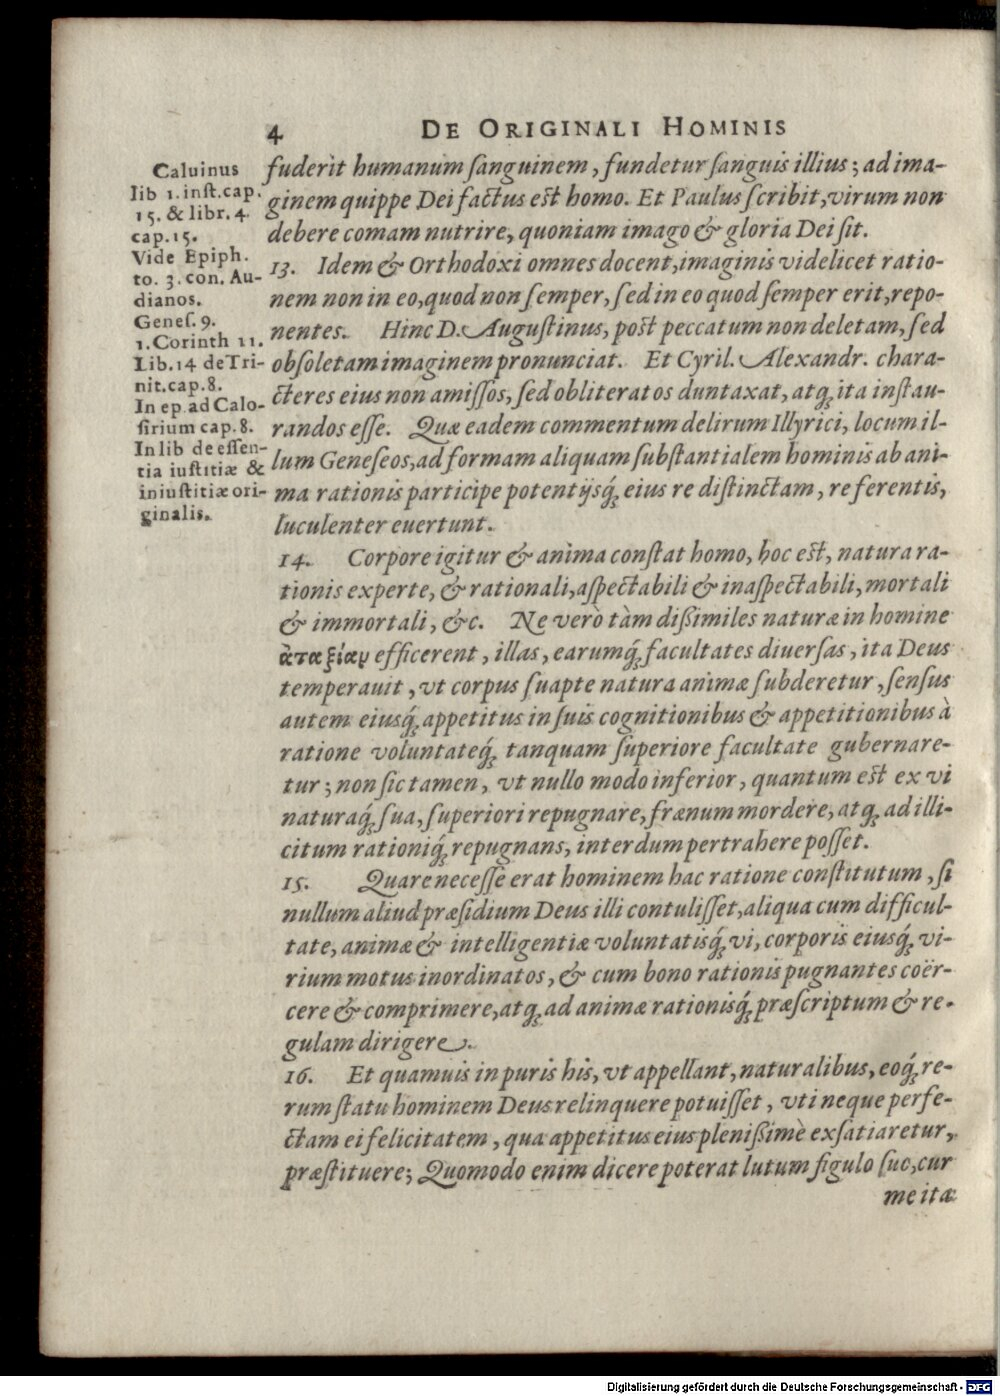 4 DE ORIGINALI HOMINIS
Caluinus
lib 1. inst. cap.
15. & libr. 4.
cap. 15.
Vide Epiph.
to. 3. con. Au-
dianos.
Genes. 9.
1. Corinth 11.
Lib. 14 de Tri-
nit. cap. 8.
In ep. ad Calo-
sirium cap. 8.
In lib de essen-
tia iustitiæ &
iniustitiæ ori-
ginalis.
fuderit humanum ſanguinem, fundetur ſanguis illius; ad ima-
ginem quippe Dei factus est homo. Et Paulus ſcribit, virum non
debere comam nutrire, quoniam imago & gloria Dei ſit.
13. Idem & Orthodoxi omnes docent, imaginis videlicet ratio-
nem non in eo, quod non ſemper, ſed in eo quod ſemper erit, repo-
nentes. Hinc D. Auguſtinus, poſt peccatum non deletam, ſed
obſoletam imaginem pronunciat. Et Cyril. Alexandr. chara-
cteres eius non amiſſos, ſed obliteratos duntaxat, atq́; ita inſtau-
randos eſſe. Quæ eadem commentum delirum Illyrici, locum il-
lum Geneſeos, ad formam aliquam ſubſtantialem hominis ab ani-
ma rationis participe potentijsq́; eius re diſtinctam, referentis,
luculenter euertunt.
14. Corpore igitur & anima conſtat homo, hoc eſt, natura ra-
tionis experte, & rationali, aſpectabili & inaſpectabili, mortali
& immortali, &c. Ne verò tàm dißimiles naturæ in homine
ἀταξίαν efficerent, illas, earumq́; facultates diuerſas, ita Deus
temperauit, vt corpus ſuapte natura animæ ſubderetur, ſenſus
autem eiusq́; appetitus in ſuis cognitionibus & appetitionibus à
ratione voluntateq́; tanquam ſuperiore facultate gubernare-
tur; non ſic tamen, vt nullo modo inferior, quantum eſt ex vi
naturaq́; ſua, ſuperiori repugnare, frænum mordere, atq́; ad illi-
citum rationiq́; repugnans, interdum pertrahere poſſet.
15. Quare neceſſe erat hominem hac ratione conſtitutum, ſi
nullum aliud præſidium Deus illi contuliſſet, aliqua cum difficul-
tate, animæ & intelligentiæ voluntatisq́; vi, corporis eiusq́; vi-
rium motus inordinatos, & cum bono rationis pugnantes coër-
cere & comprimere, atq́; ad animæ rationisq́; præſcriptum & re-
gulam dirigere.
16. Et quamuis in puris his, vt appellant, naturalibus, eoq́; re-
rum ſtatu hominem Deus relinquere potuiſſet, vti neque perfe-
ctam ei felicitatem, qua appetitus eius plenißimè exſatiaretur,
præſtituere; Quomodo enim dicere poterat lutum figulo ſuo, cur
me ita
Digitalisierung gefördert durch die Deutsche Forschungsgemeinschaft - DFG